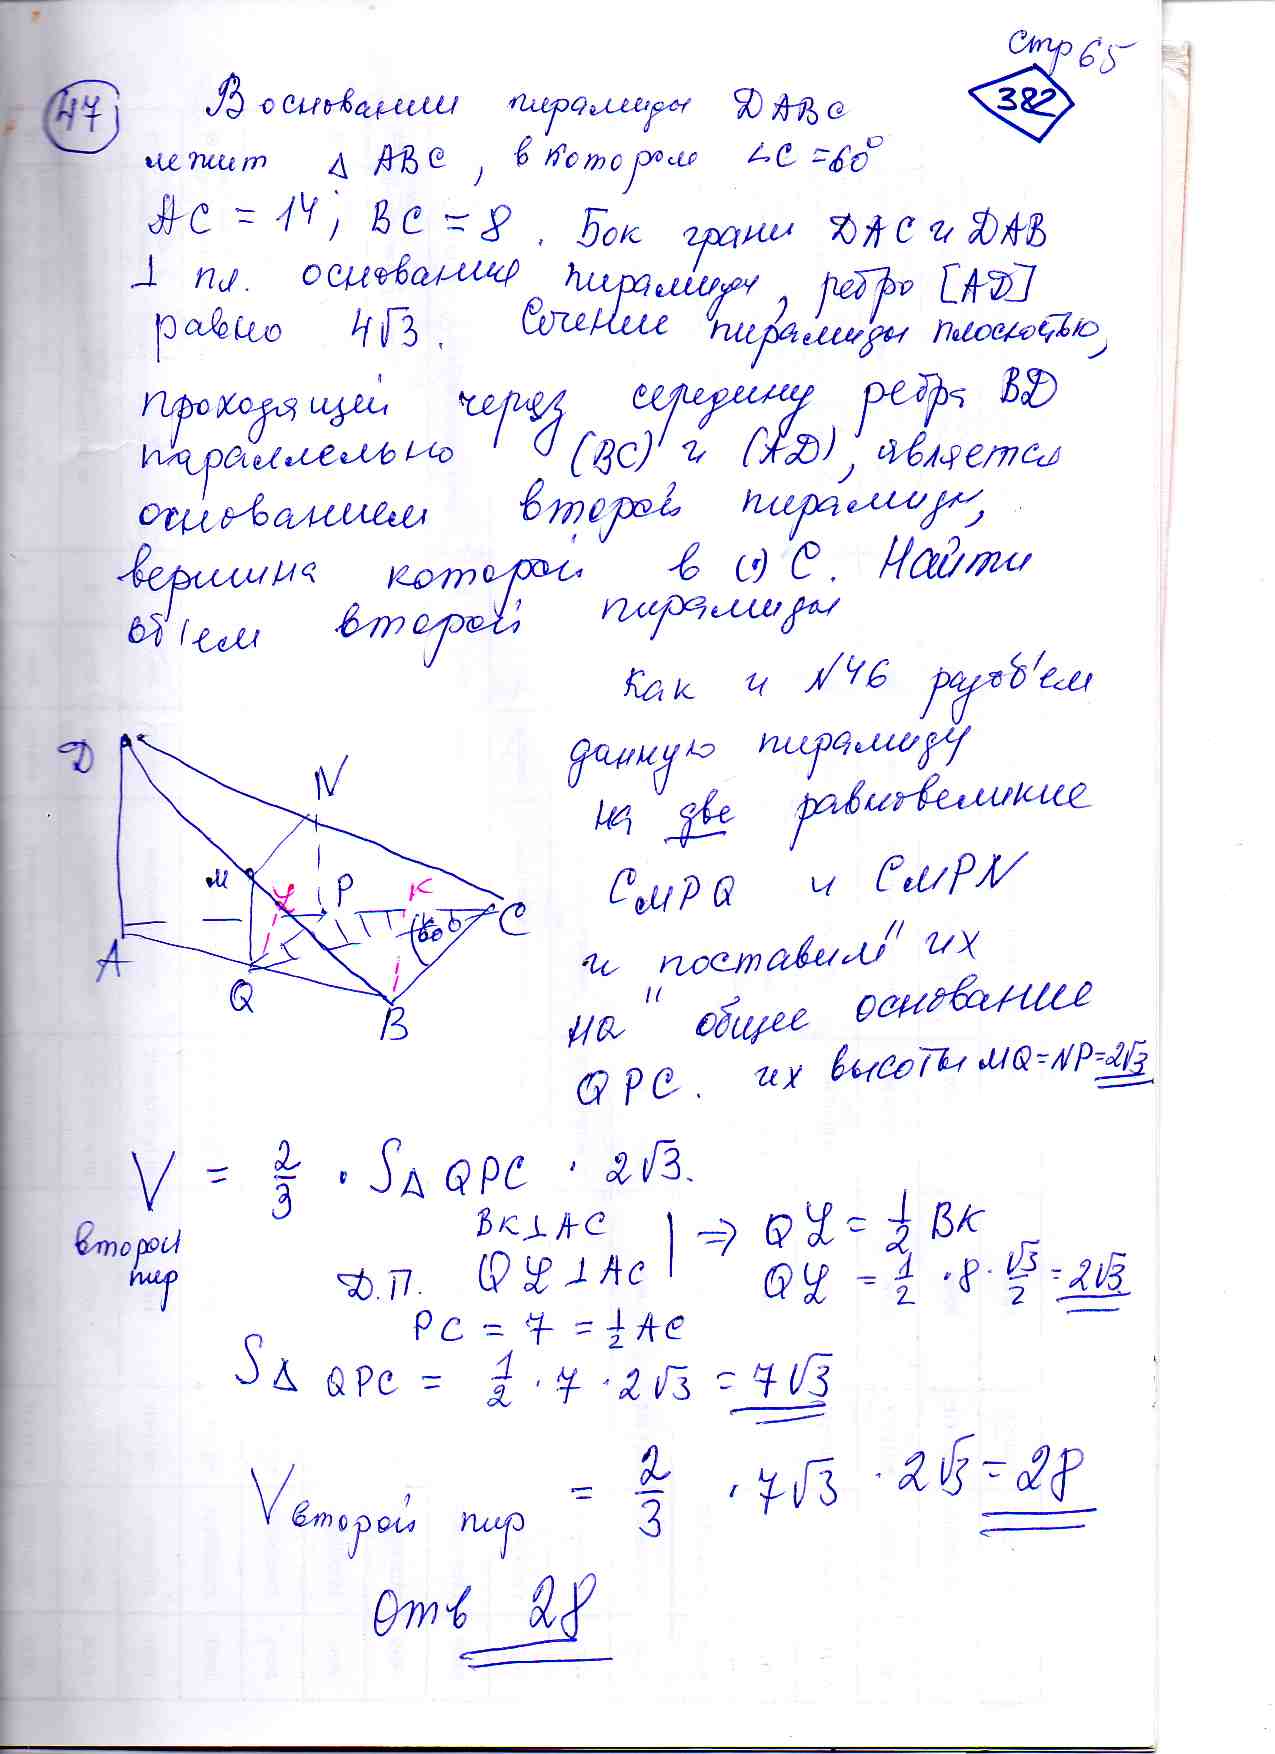 стр 65
382
47
В основании пирамиды DABC
лежит Δ ABC, в котором ∠C = 60°
AC = 14; BC = 8. Бок грани DAC и DAB
⊥ пл. основания пирамиды, ребро [AD]
равно 4√3. Сечение пирамиды плоскостью,
проходящей через середину ребра BD
параллельно (BC) и (AD), является
основанием второй пирамиды,
вершина которой в (·) C. Найти
об'ем второй пирамиды
Как и N46 разоб'ем
данную пирамиду
на две равновеликие
CMPQ и CMPN
и "поставим" их
на общее основание
QPC. их высоты MQ=NP=2√3
D
N
M
L
P
K
60°
C
A
Q
B
V = 2/3 · SΔ QPC · 2√3.
второй пир
Д.П. BK⊥AC
QL⊥AC
⇒ QL = 1/2 BK
QL = 1/2 · 8 · √3/2 = 2√3
PC = 7 = 1/2 AC
SΔ QPC = 1/2 · 7 · 2√3 = 7√3
V второй пир = 2/3 · 7√3 · 2√3 = 28
Отв 28